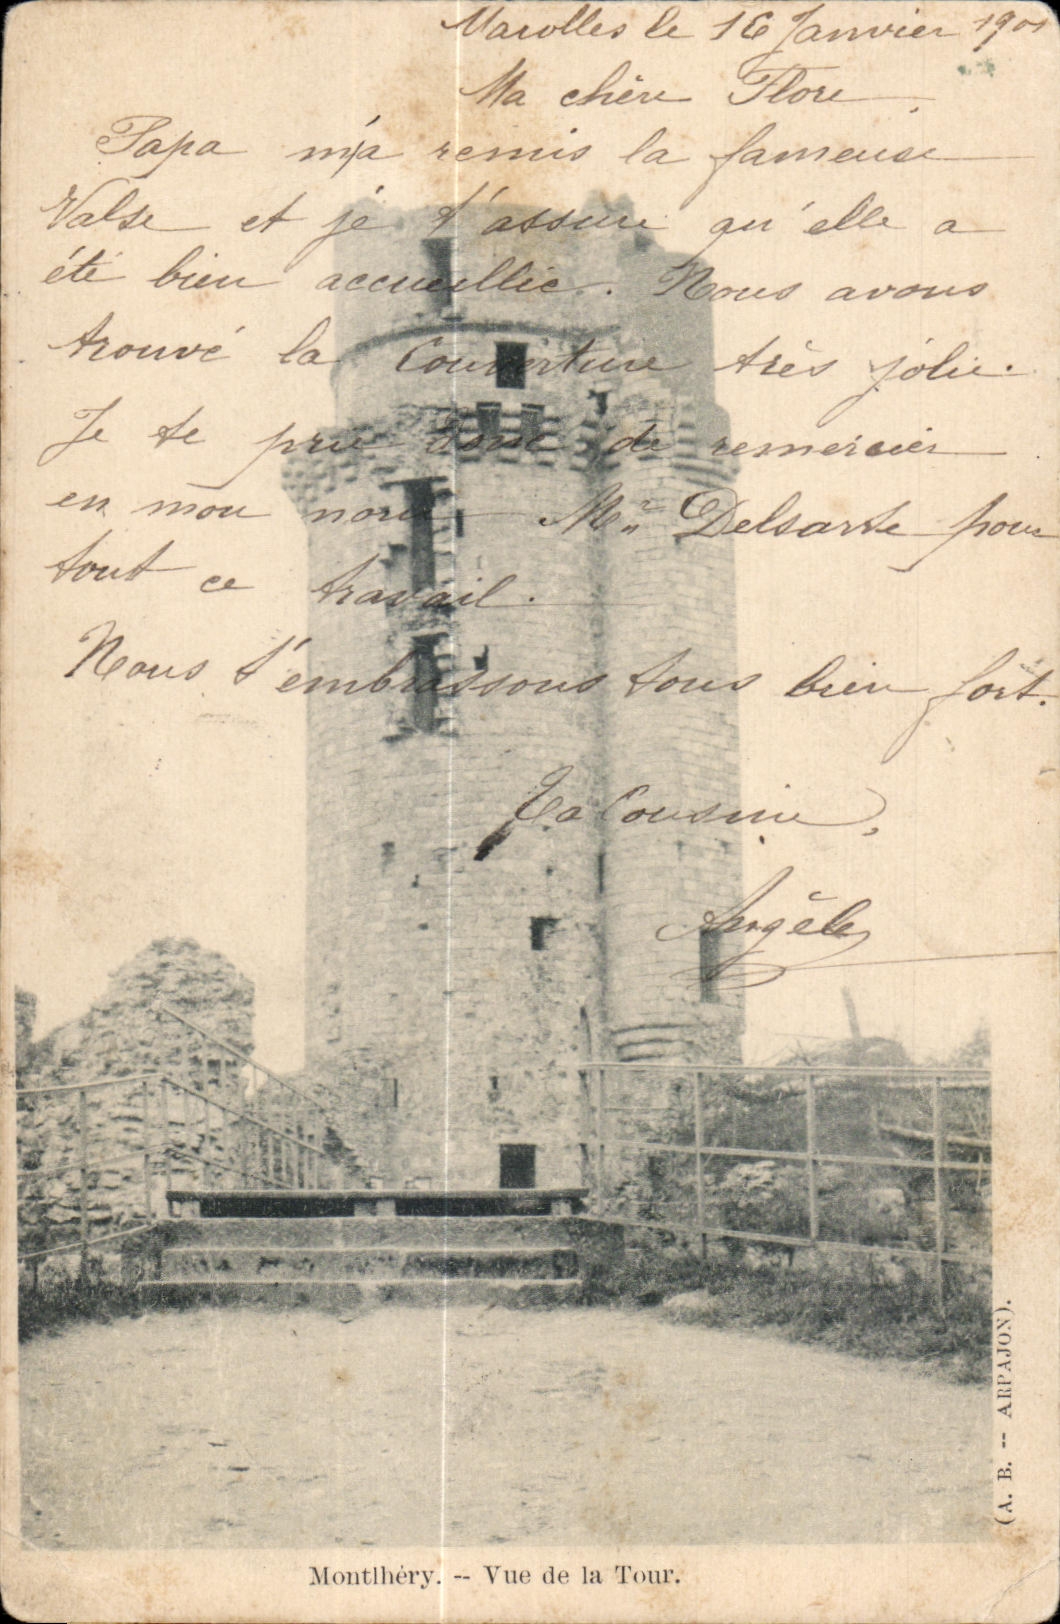 Marolles le 16 Janvier 1901
Ma chère Flore,
Papa m'a remis la fameuse
Valse et je t'assure qu'elle a
été bien accueillie. Nous avons
trouvé la Couverture très jolie.
Je te prie donc de remercier
en mon nom Mr Delsarte pour
tout ce travail.
Nous t'embrassons tous bien fort.
Ta Cousine,
Angèle
(A. B. -- ARPAJON).
Montlhéry. -- Vue de la Tour.